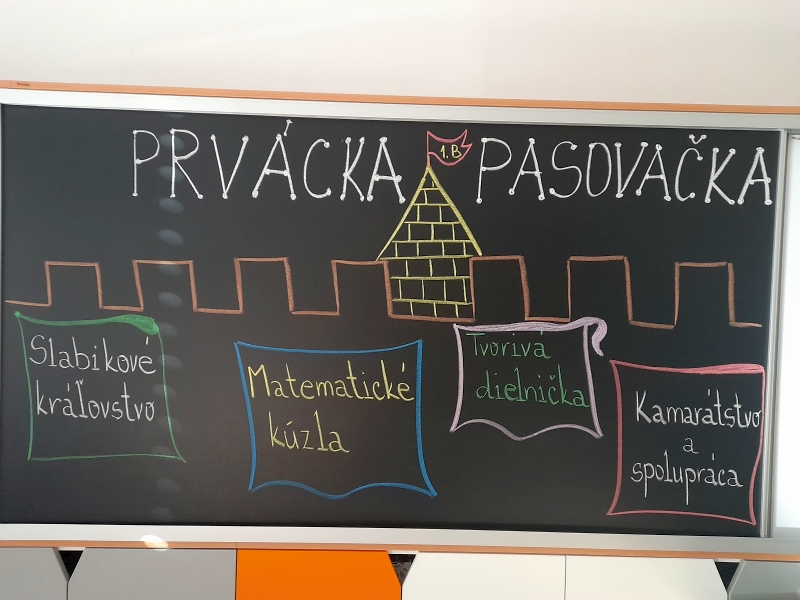 PRVÁCKA 1.B PASOVAČKA
Slabikové
kráľovstvo
Matematické
kúzla
Tvorivá
dielnička
Kamarátstvo
a
spolupráca